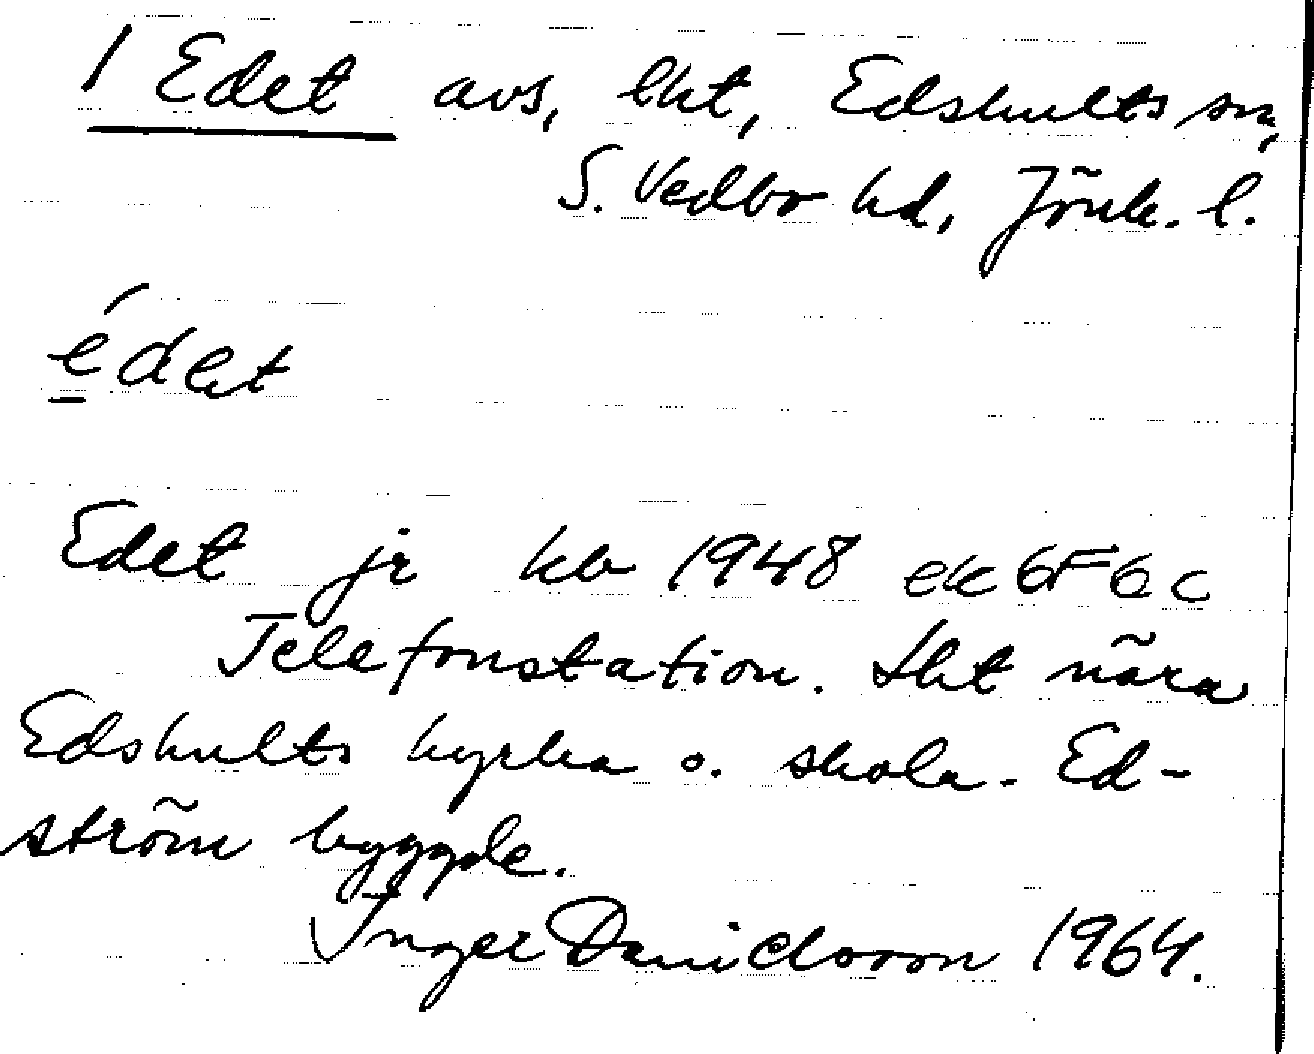 1 Edet avs, lht, Edshults sn,
S. Vedbo hd, Jönk. l.
é̱det
Edet jr kb 1948 ek 6F6c
Telefonstation. Lht nära
Edshults kyrka o. skola. Ed-
ström byggde.
Inger Danielsson 1964.